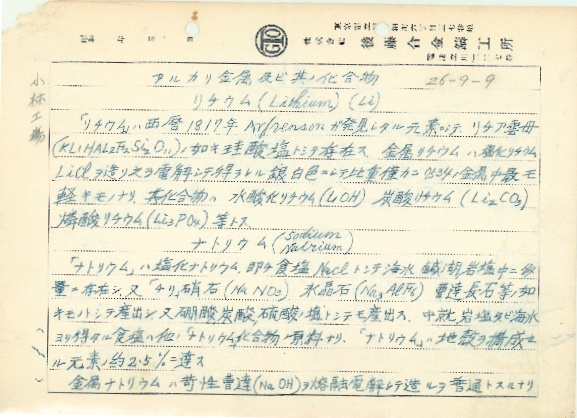 株式会社 後藤合金鋳工所
GTO
昭 年 月 日
小林工場
アルカリ金属及ビ其ノ化合物 26-9-9
リチウム (Lithium) (Li)
「リチウム」ハ西暦1817年Arfvensonガ発見シタル元素ニシテ、リチア雲母
ノ如キ珪酸塩トシテ存在ス 金属リチウムハ塩化リチウム
LiClヲ造リ之ヲ電解シテ得ラレル 銀白色ニシテ比重僅カニ 金属中最モ
軽キモノナリ 其化合物ハ 水酸化リチウム(LiOH) 炭酸リチウム(Li₂CO₃)
燐酸リチウム(Li₃PO₄)等トス
ナトリウム (Sodium Natrium)
「ナトリウム」ハ塩化ナトリウム、即チ食塩NaClトシテ海水 鹹湖岩塩中ニ多
量ニ存在シ 又「チリ」硝石(NaNO₃) 氷晶石(Na₃AlF₆) 曹達長石等ノ如
キモノトシテ産出シ又硼酸炭酸硝酸ノ塩トシテモ産出ス 中就岩塩及ビ海水
ヨリ得タル食塩ハ他ノナトリウム化合物ノ原料ナリ、「ナトリウム」ハ地殻ヲ構成セ
ル元素ノ約2.5%ニ達ス
金属ナトリウムハ苛性曹達(NaOH)ヲ熔融電解シテ造ルヲ普通トスルナリ